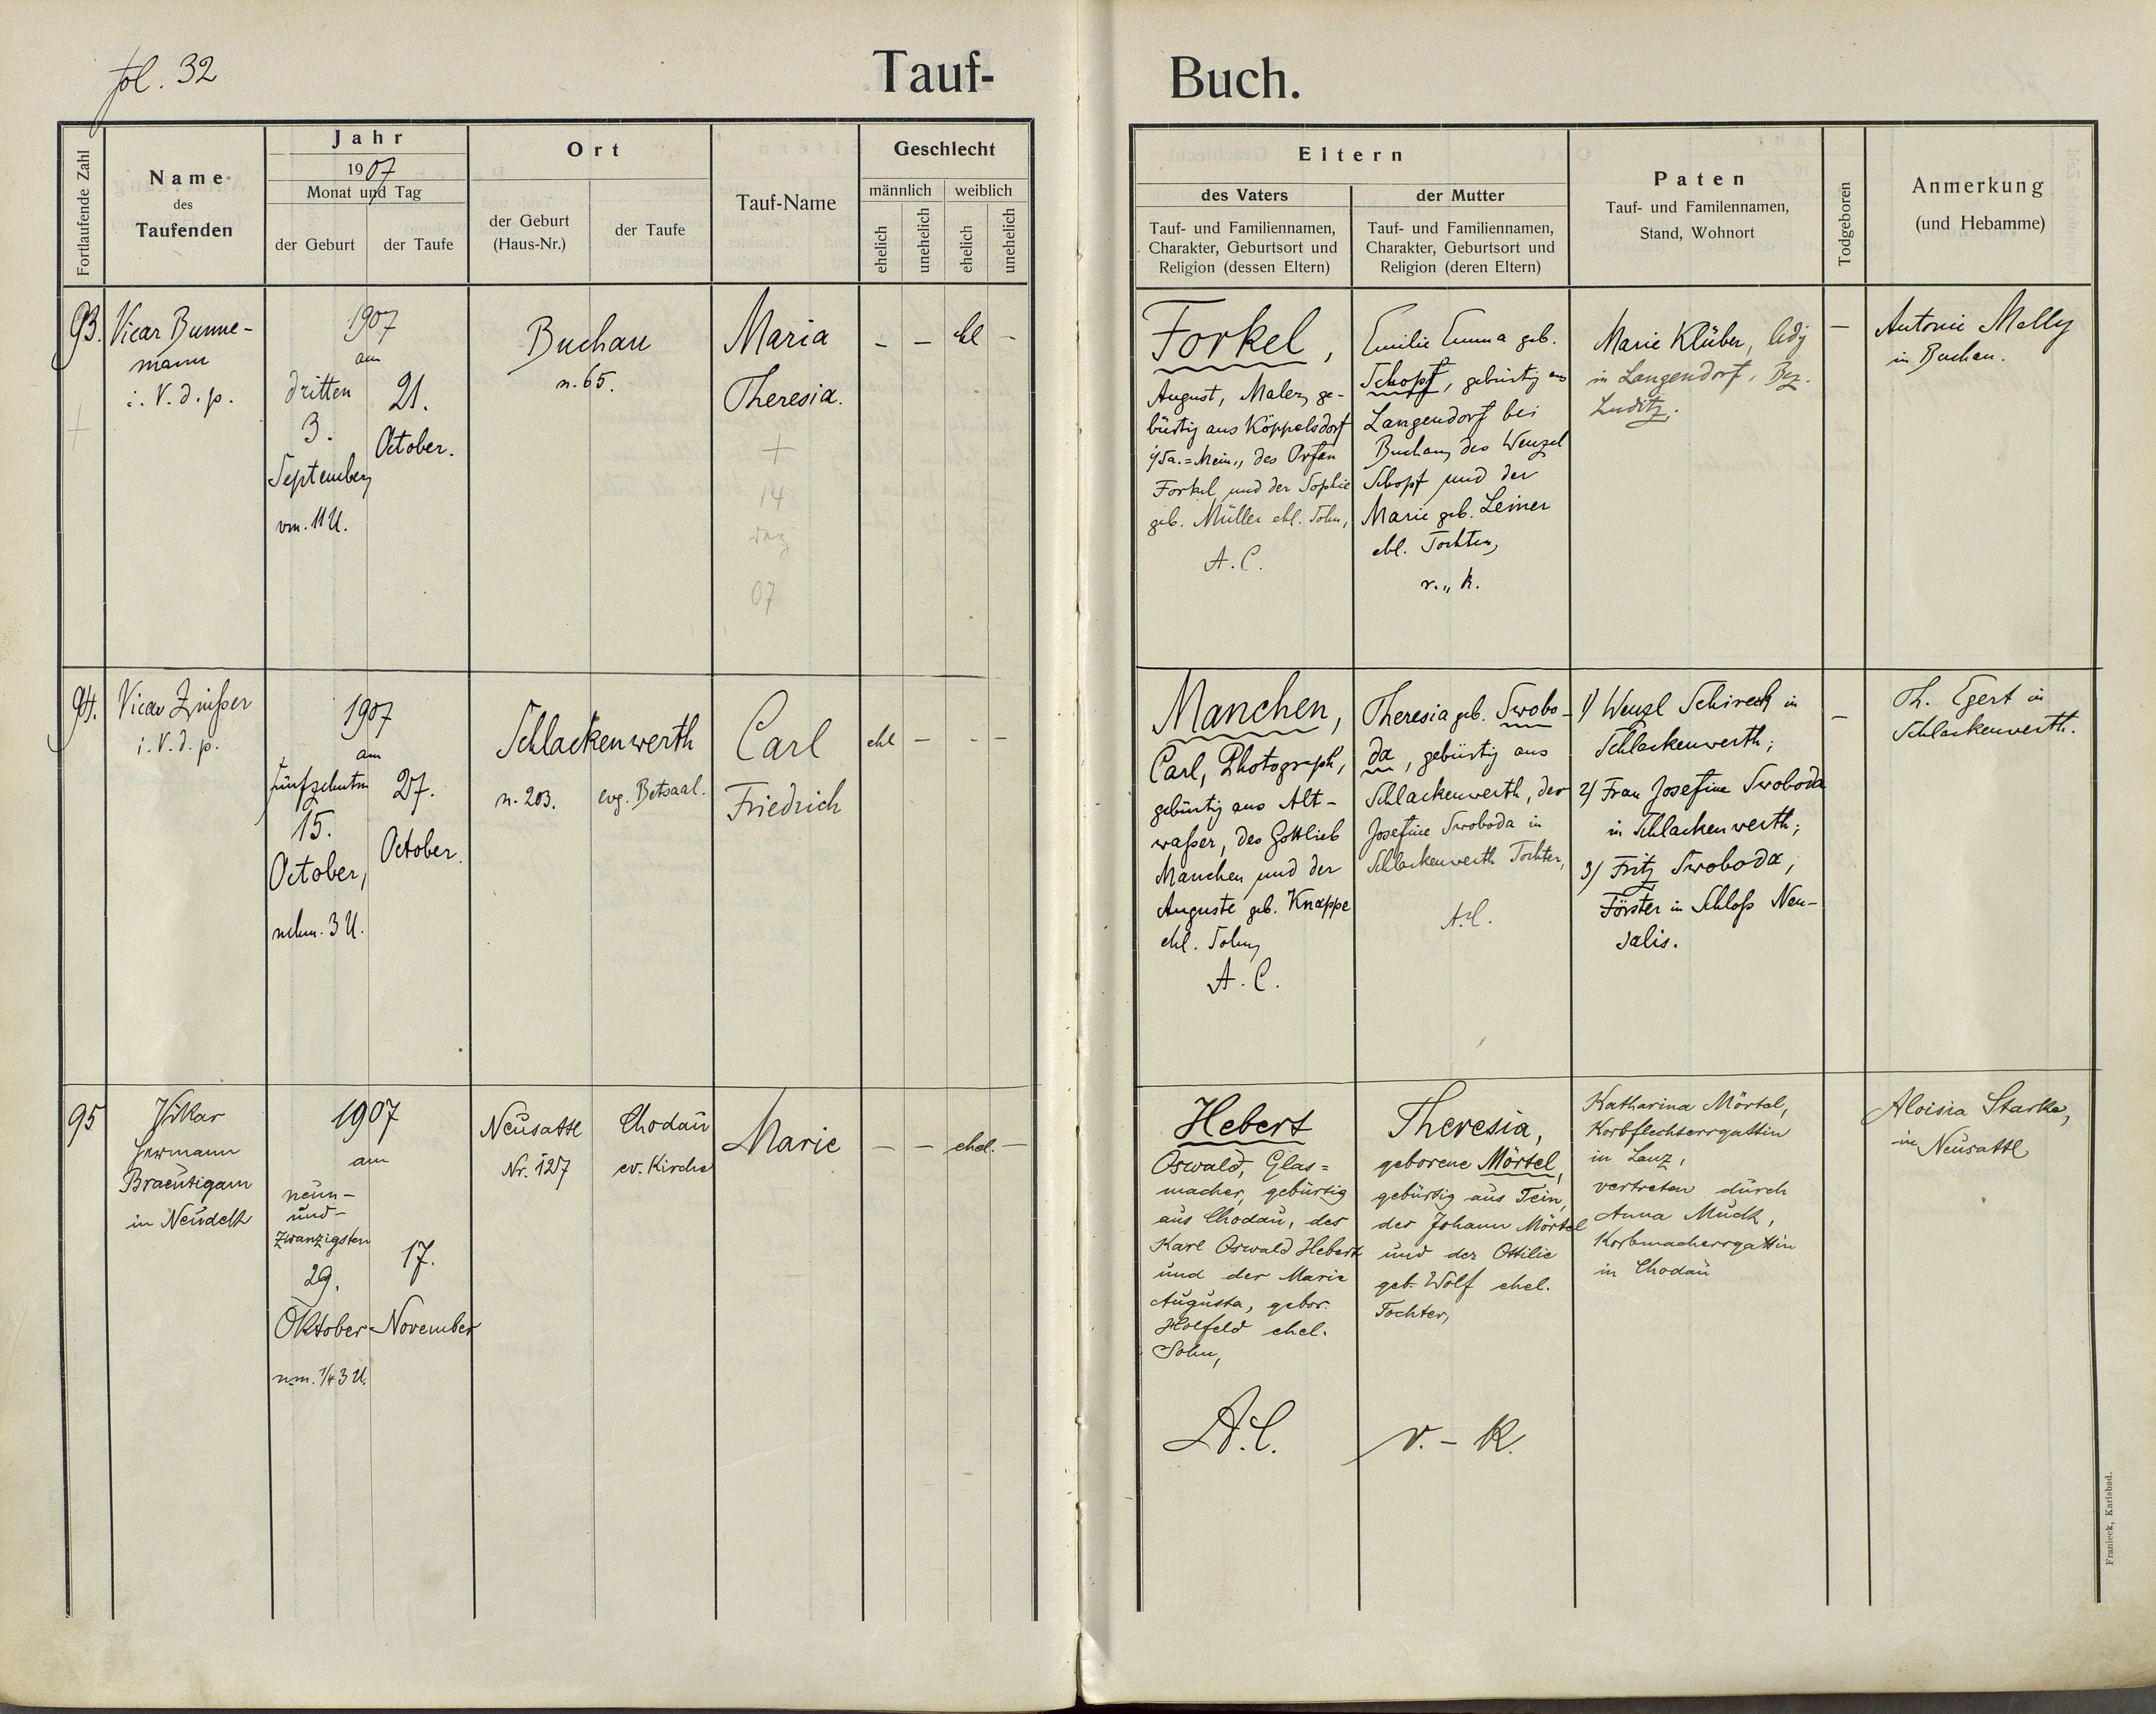 fol. 32
Tauf-
Buch.
Fortlaufende Zahl
Name
des
Taufenden
Jahr
1907
Monat und Tag
der Geburt
der Taufe
Ort
der Geburt
(Haus-Nr.)
der Taufe
Tauf-Name
Geschlecht
männlich
weiblich
ehelich
unehelich
ehelich
unehelich
Eltern
des Vaters
Tauf- und Familiennamen,
Charakter, Geburtsort und
Religion (dessen Eltern)
der Mutter
Tauf- und Familiennamen,
Charakter, Geburtsort und
Religion (deren Eltern)
Paten
Tauf- und Familennamen,
Stand, Wohnort
Todgeboren
Anmerkung
(und Hebamme)
93.
Vicar Bunne-
mann
i. V. d. p.
1907
am
dritten
3.
September,
vm. 11 U.
21.
October.
Buchau
n. 65.
Maria
Theresia.
+
14
07
– – ehl –
Forkel,
August, Maler, ge-
bürtig aus Köppelsdorf
i/Sa.=Mein., des
Forkel und der Sophie
geb. Müller ehl. Sohn,
A. C.
Emilie Emma geb.
Schopf, gebürtig aus
Langendorf bei
Buchau, des Wenzel
Schopf und der
Marie geb. Leiner
ehl. Tochter,
r.„ k.
Marie Klüber, ledig
in Langendorf, Bez.
Luditz.
–
Antonie Melly
in Buchau.
94.
Vicar Zwisser
i. V. d. p.
1907
am
fünfzehnten
15.
October,
nchm. 3 U.
27.
October.
Schlackenwerth
n. 203.
evg. Betsaal.
Carl
Friedrich
ehl – – –
Manchen,
Carl, Photograph,
gebürtig aus Alt-
waßer, des Gottlieb
Manchen und der
Auguste geb. Knappe
ehl. Sohn,
A. C.
Theresia geb. Swobo-
da, gebürtig aus
Schlackenwerth, der
Josefine Swoboda in
Schlackenwerth Tochter,
A.C.
1) Wenzl Schireck in
Schlackenwerth;
2) Frau Josefine Swoboda
in Schlackenwerth;
3) Fritz Swoboda,
Förster in Schloß Neu-
salis.
–
Th. Egert in
Schlackenwerth.
95
Vikar
Hermann
Braeutigam
in Neudek
1907
am
neun-
und-
zwanzigsten
29.
Oktober
nm. 1/4 3 U.
17.
November
Neusattl
Nr. 127
Chodau
ev. Kirche
Marie
– – ehel. –
Hebert
Oswald, Glas=
macher, gebürtig
aus Chodau, des
Karl Oswald Hebert
und der Marie
Augusta, gebor.
Holfeld ehel.
Sohn,
A.C.
Theresia,
geborene Mörtel,
gebürtig aus Tein,
des Johann Mörtel
und der Ottilie
geb. Wolf ehel.
Tochter,
r. – k.
Katharina Mörtal,
Korbflechtersgattin
in Lanz,
vertreten durch
Anna Muck,
Korbmachersgattin
in Chodau
Aloisia Starka,
in Neusattl
Franieck, Karlsbad.